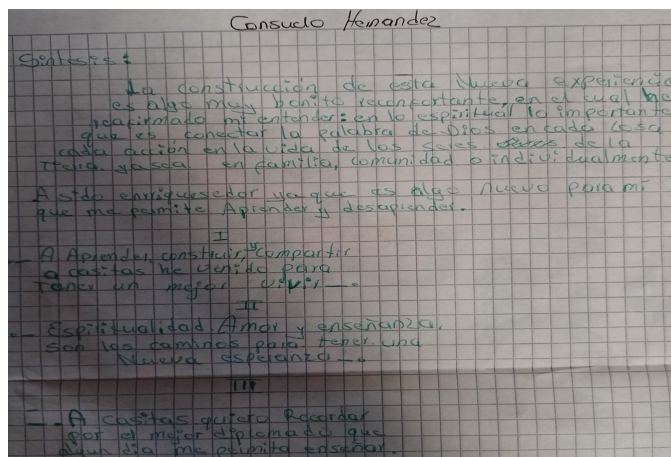 Consuelo Hernandez
Sintesis:
La construcción de esta Nueva experiencia
es algo muy bonito reconfortante, en el cual he
reafirmado mi entender: en lo espiritual lo importante
que es conectar la palabra de Dios en cada cosa
cada acción en la vida de los seres de la
tierra, ya sea en familia, comunidad o individualmente
A sido enriquesedor ya que es algo nuevo para mi
que me permite Aprender y desaprender.
I
— A Aprender, construir, y compartir
a casitas he venido para
tener un mejor vivir —.
II
— Espiritualidad, Amor y enseñanza,
son los caminos para tener una
Nueva esperanza —.
III
— A casitas quiero Recordar
por el mejor diplomado que
algun dia me permita enseñar.